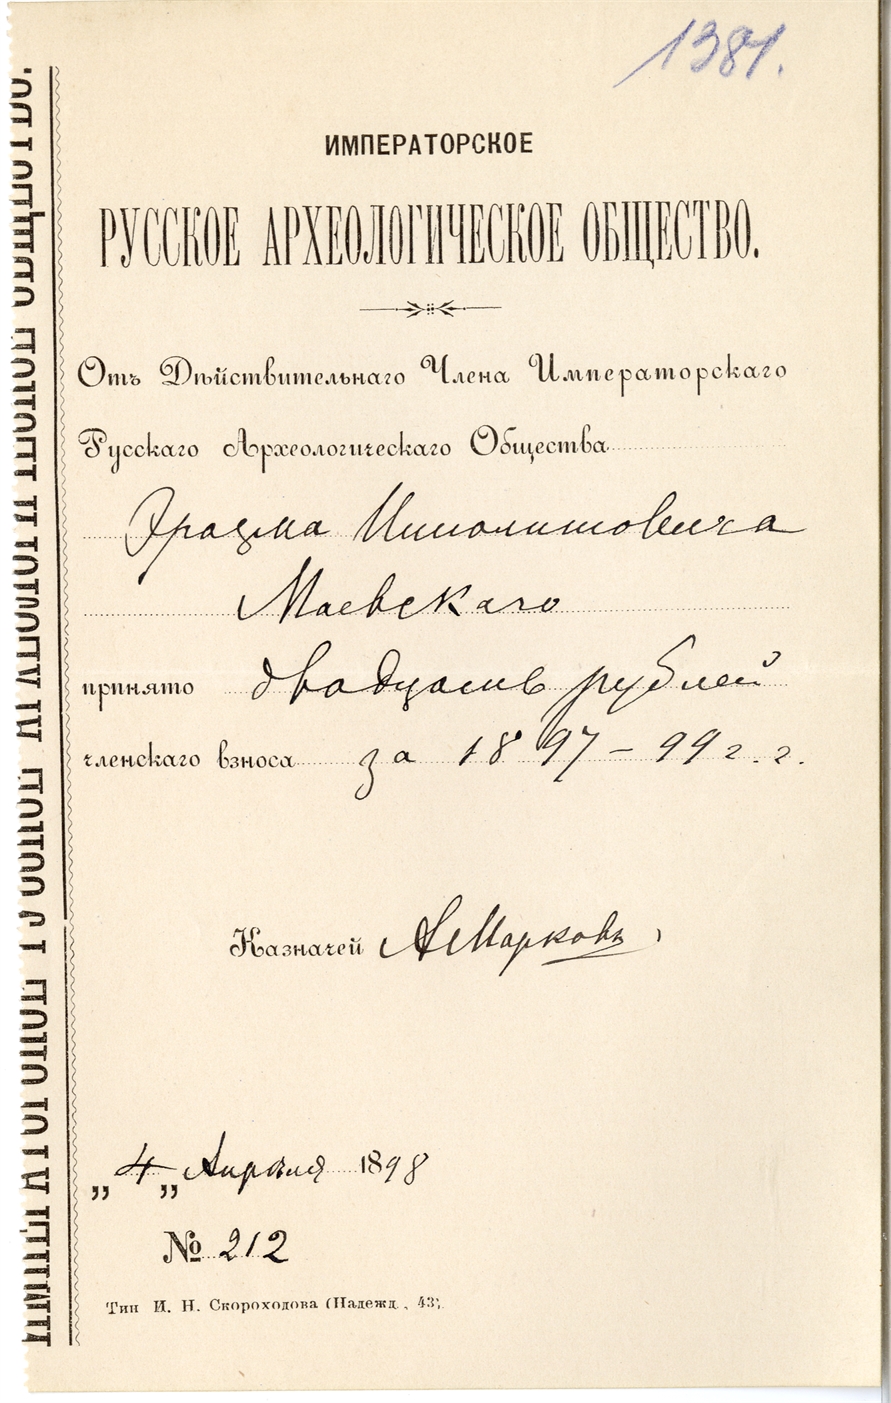 1381.
ИМПЕРАТОРСКОЕ
РУССКОЕ АРХЕОЛОГИЧЕСКОЕ ОБЩЕСТВО.
Отъ Дѣйствительнаго Члена Императорскаго
Русскаго Археологическаго Общества
Эразма Ипполитовича
Маевскаго
принято двадцать рублей
членскаго взноса за 1897-99 г. г.
Казначей АМарковъ
„4„ Апрѣля 1898
№ 212
Тип И. Н. Скороходова (Надежд., 43).